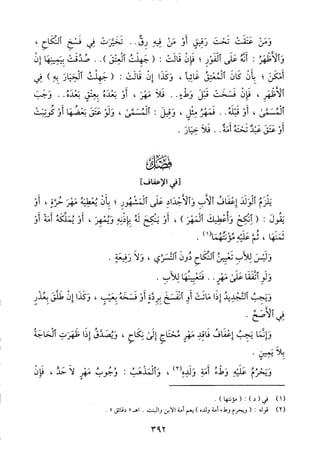 وَمَنْ عَتَقَتْ تَحْتَ رَقِيقٍ أَوْ مَنْ فِيهِ رِقٌّ.. تَخَيَّرَتْ فِي فَسْخِ ٱلنِّكَاحِ ،
وَٱلأَظْهَرُ : أَنَّهُ عَلَى ٱلْفَوْرِ ؛ فَإِنْ قَالَتْ : ( جَهِلْتُ ٱلْعِتْقَ ).. صُدِّقَتْ بِيَمِينِهَا إِنْ
أَمْكَنَ ؛ بِأَنْ كَانَ ٱلْمُعْتِقُ غَائِباً ، وَكَذَا إِنْ قَالَتْ : ( جَهِلْتُ ٱلْخِيَارَ بِهِ ) فِي
ٱلأَظْهَرِ ، فَإِنْ فَسَخَتْ قَبْلَ وَطْءٍ.. فَلاَ مَهْرَ ، أَوْ بَعْدَهُ بِعِتْقٍ بَعْدَهُ.. وَجَبَ
ٱلْمُسَمَّىٰ ، أَوْ قَبْلَهُ.. فَمَهْرُ مِثْلٍ ، وَقِيلَ : ٱلْمُسَمَّىٰ ، وَلَوْ عَتَقَ بَعْضُهَا أَوْ كُوتِبَتْ
أَوْ عَتَقَ عَبْدٌ تَحْتَهُ أَمَةٌ.. فَلاَ خِيَارَ .
فَصْلٌ
[في الإعفاف]
يَلْزَمُ ٱلْوَلَدَ إِعْفَافُ ٱلأَبِ وَٱلأَجْدَادِ عَلَى ٱلْمَشْهُورِ ؛ بِأَنْ يُعْطِيَهُ مَهْرَ حُرَّةٍ ، أَوْ
يَقُولَ : ( ٱنْكِحْ وَأُعْطِيكَ ٱلْمَهْرَ ) ، أَوْ يَنْكِحَ لَهُ بِإِذْنِهِ وَيُمْهِرَ ، أَوْ يُمَلِّكَهُ أَمَةً أَوْ
ثَمَنَهَا ، ثُمَّ عَلَيْهِ مُؤْنَتُهُمَا(١) .
وَلَيْسَ لِلأَبِ تَعْيِينُ ٱلنِّكَاحِ دُونَ ٱلتَّسَرِّي ، وَلاَ رَفِيعَةٍ .
وَلَوِ ٱتَّفَقَا عَلَىٰ مَهْرٍ.. فَتَعْيِينُهَا لِلأَبِ .
وَيَجِبُ ٱلتَّجْدِيدُ إِذَا مَاتَتْ أَوِ ٱنْفَسَخَ بِرِدَّةٍ أَوْ فَسَخَهُ بِعَيْبٍ ، وَكَذَا إِنْ طَلَّقَ بِعُذْرٍ
فِي ٱلأَصَحِّ .
وَإِنَّمَا يَجِبُ إِعْفَافُ فَاقِدِ مَهْرٍ مُحْتَاجٍ إِلَىٰ نِكَاحٍ ، وَيُصَدَّقُ إِذَا ظَهَرَتِ ٱلْحَاجَةُ
بِلاَ يَمِينٍ .
وَيَحْرُمُ عَلَيْهِ وَطْءُ أَمَةِ وَلَدِهِ(٢) ، وَٱلْمَذْهَبُ : وُجُوبُ مَهْرٍ لاَ حَدٍّ ، فَإِنْ
(١) في ( د ) : ( مؤنتها ) .
(٢) قوله : ( ويحرم وطء أمة ولده ) يعم أمة الابن والبنت . اهـ « دقائق » .
٣٩٢